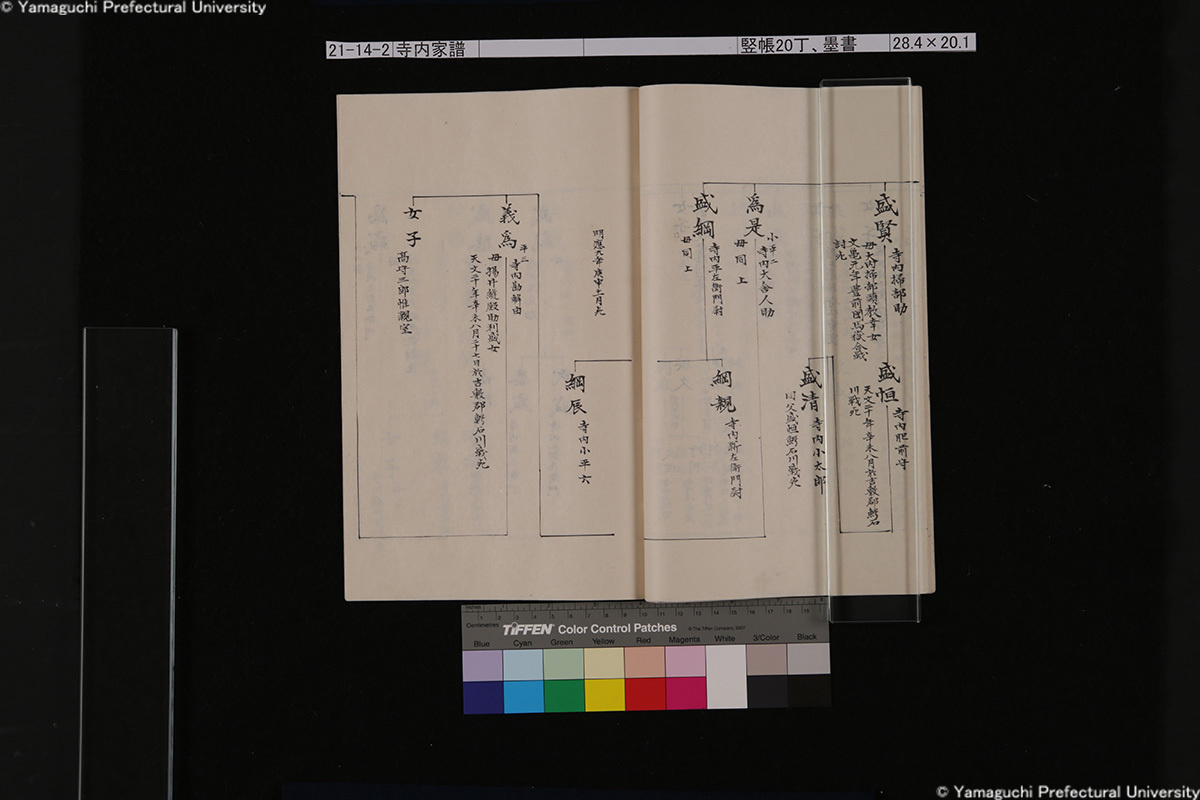 © Yamaguchi Prefectural University
21-14-2 寺内家譜 竪帳20丁、墨書 28.4×20.1
盛賢
寺内掃部助
母大内掃部頭教幸女
文亀元年豊前国馬嶽合戦
討死
盛恒
寺内肥前守
天文二十年辛未八月於吉敷郡鯖石
川戦死
盛清
寺内小太郎
同父盛恒鯖石川戦死
為是
小平二
寺内大舎人助
母同上
盛綱
寺内平左衛門尉
母同上
綱親
寺内新左衛門尉
明應九年庚申十二月死
綱辰
寺内小平六
義為
平二
寺内勘解由
母楊井縫殿助利盛女
天文二十年辛未八月二十七日於吉敷郡鯖石川戦死
女子
高守三郎惟親室
Inches
Centimetres
TIFFEN Color Control Patches
© The Tiffen Company, 2007
Blue Cyan Green Yellow Red Magenta White 3/Color Black
© Yamaguchi Prefectural University